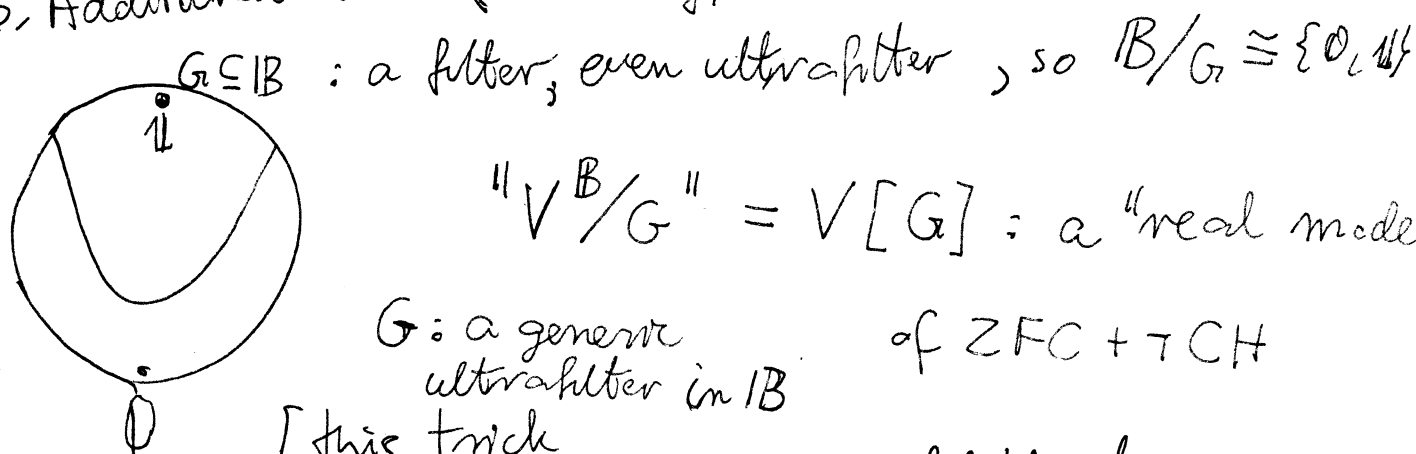 G ⊆ 𝔹 : a filter, even ultrafilter, so 𝔹/G ≅ {𝟘, 𝟙}
𝟙
"V^𝔹/G" = V[G] : a "real mode
G : a generic
of ZFC + ¬ CH
ultrafilter in 𝔹
𝟘
[ this trick